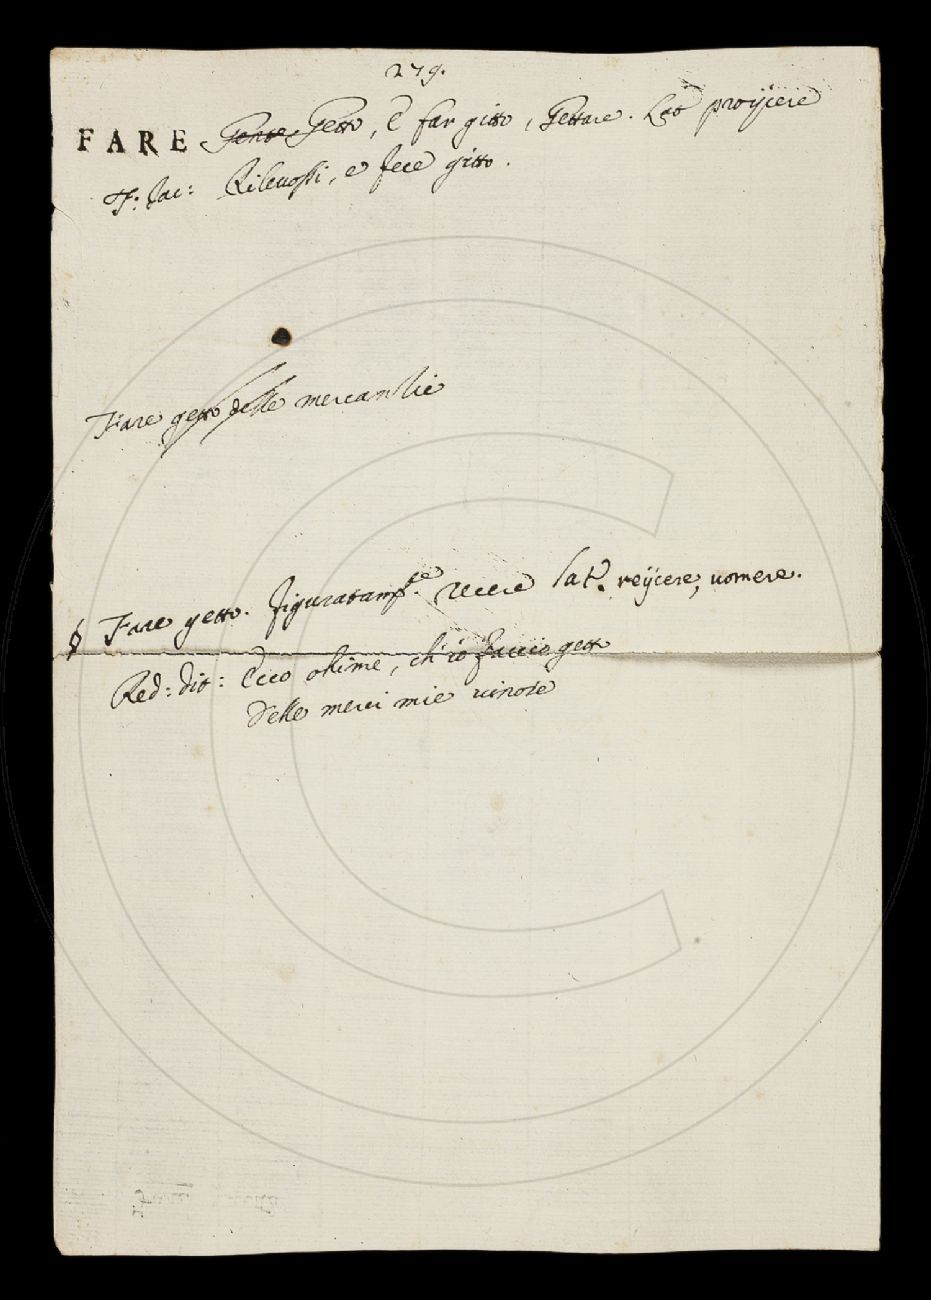 279.
FARE Gente Getto, E far gitto, Gettare. Lat proijcere
F: Jac: Rilevossi, e fece gitto.
Fare getto delle mercanzie
§ Fare getto. figuratam.te recere Lat. reijcere, vomere.
Red: dit: Ecco ohime, ch'io faccio getto
Delle merci mie vinose